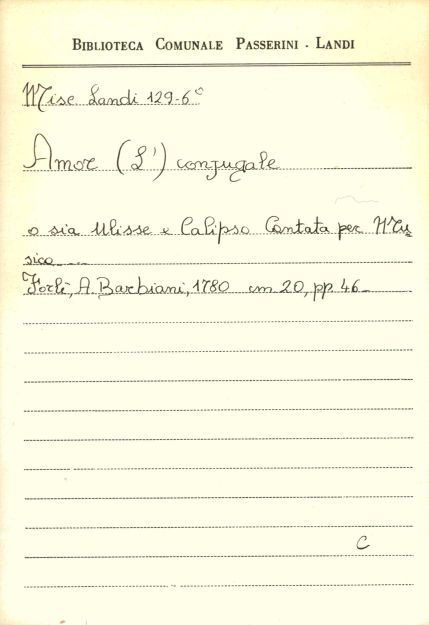 BIBLIOTECA COMUNALE PASSERINI - LANDI
Misc Landi 129-6°
Amor (L') conjugale
o sia Ulisse e Calipso Cantata per Mu=
sica....
Forlì, A. Barbiani, 1780 cm 20, pp. 46-
C